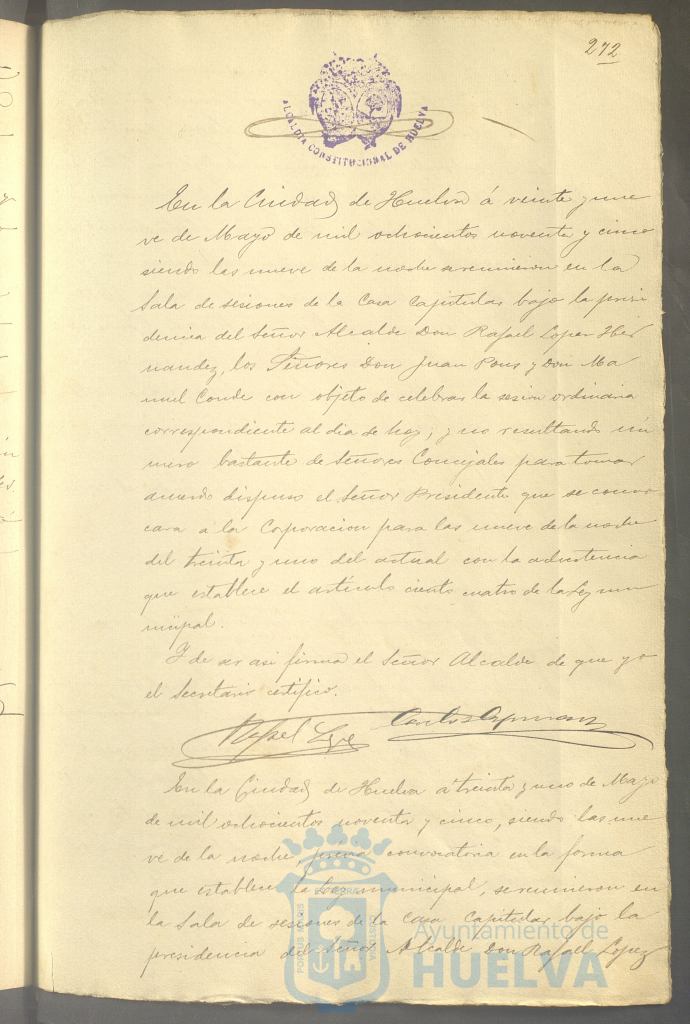 272
ALCALDIA CONSTITUCIONAL DE HUELVA
En la Ciudad de Huelva á veinte y nue
ve de Mayo de mil ochocientos noventa y cinco
siendo las nueve de la noche se reunieron en la
Sala de sesiones de la Casa Capitular bajo la presi
dencia del Señor Alcalde Don Rafael Lopez Her
nandez, los Señores Don Juan Pons y Don Ma
nuel Conde con objeto de celebrar la sesion ordinaria
correspondiente al dia de hoy; y no resultando nú
mero bastante de Señores Concejales para tomar
acuerdo dispuso el Señor Presidente que se convo
cara á la Corporacion para las nueve de la noche
del treinta y uno del actual con la advertencia
que establece el artículo ciento cuatro de la Ley mu
nicipal.
Y de ser asi firma el Señor Alcalde de que yo
el Secretario certifico.
Rafael Lopez
En la Ciudad de Huelva á treinta y uno de Mayo
de mil ochocientos noventa y cinco, siendo las nue
ve de la noche, previa convocatoria en la forma
que establece la Ley municipal, se reunieron en
la Sala de sesiones de la Casa Capitular bajo la
presidencia del Señor Alcalde Don Rafael Lopez
Ayuntamiento de
HUELVA